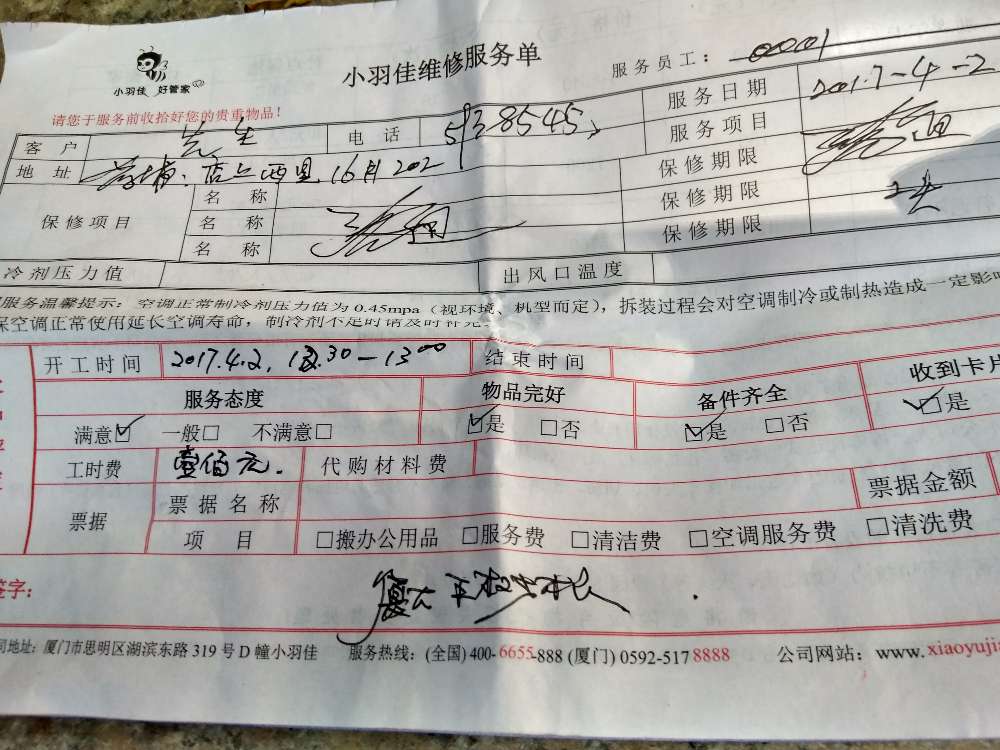 小羽佳 好管家
小羽佳维修服务单
服务员工: 00001
请您于服务前收拾好您的贵重物品!
服务日期 2017-4-2
客户 先生 电话
服务项目
地址
保修期限
名称
保修项目 名称 保修期限
名称 保修期限
冷剂压力值 出风口温度
服务温馨提示: 空调正常制冷剂压力值为 0.45mpa (视环境、机型而定), 拆装过程会对空调制冷或制热造成一定影
保空调正常使用延长空调寿命, 制冷剂不足时请及时补充
开工时间 2017.4.2, 12.30-13 00 结束时间
服务态度 物品完好 备件齐全 收到卡片
满意☑ 一般□ 不满意□ ☑是 □否 ☑是 □否 ☑是
工时费 壹佰元. 代购材料费
票据 票据名称 票据金额
项目 □搬办公用品 □服务费 □清洁费 □空调服务费 □清洗费
签字:
司地址: 厦门市思明区湖滨东路 319 号 D 幢小羽佳 服务热线: (全国) 400-6655-888 (厦门) 0592-517 8888 公司网站: www.xiaoyujia